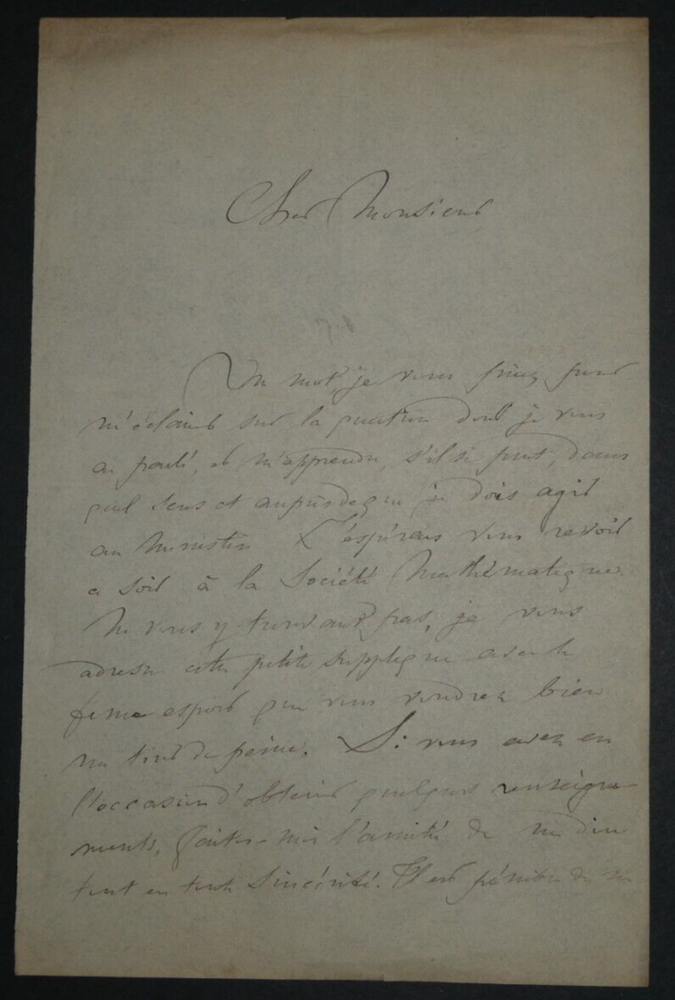 Cher Monsieur
Un mot, je vous prie, pour
m'éclairer sur la question dont je vous
ai parlé, et m'apprendre, s'il se peut, dans
quel sens et auprès de qui je dois agir
au Ministère. J'espérais vous revoir
ce soir à la Société Mathématique.
Ne vous y trouvant pas, je vous
adresse cette petite supplique avec le
ferme espoir que vous voudrez bien
me tirer de peine. Si vous avez eu
l'occasion d'obtenir quelques renseigne
ments, faites-moi l'amitié de me dire
tout en toute sincérité. Il est pénible de